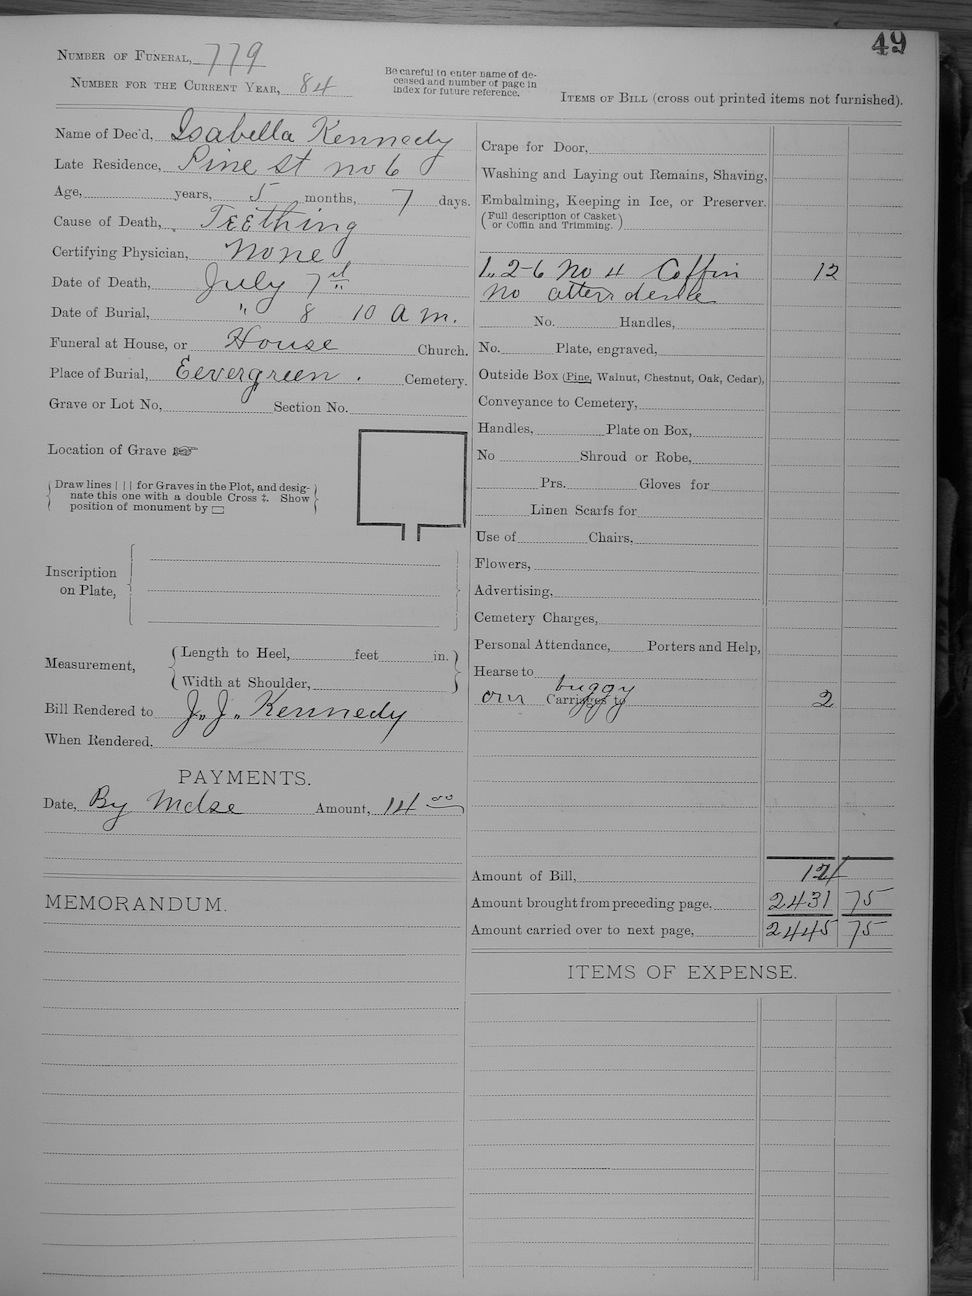 49
Number of Funeral, 779
Number for the Current Year, 84
Be careful to enter name of de-
ceased and number of page in
index for future reference.
Items of Bill (cross out printed items not furnished).
Name of Dec'd, Isabella Kennedy
Late Residence, Pine St no 6
Age, years, 5 months, 7 days.
Cause of Death, Teething
Certifying Physician, None
Date of Death, July 7th
Date of Burial, " 8 10 A M.
Funeral at House, or House Church.
Place of Burial, Eevergreen. Cemetery.
Grave or Lot No, Section No.
Location of Grave ☞
Draw lines | | | for Graves in the Plot, and desig-
nate this one with a double Cross ‡. Show
position of monument by ▭
Inscription
on Plate,
Measurement,
Length to Heel, feet in.
Width at Shoulder,
Bill Rendered to J. J. Kennedy
When Rendered,
PAYMENTS.
Date, By Mdse Amount, 14 00
MEMORANDUM.
Crape for Door,
Washing and Laying out Remains, Shaving,
Embalming, Keeping in Ice, or Preserver.
(Full description of Casket
or Coffin and Trimming.)
1, 2-6 No 4 Coffin 12
No
No. Handles,
No. Plate, engraved,
Outside Box (Pine, Walnut, Chestnut, Oak, Cedar),
Conveyance to Cemetery,
Handles, Plate on Box,
No Shroud or Robe,
Prs. Gloves for
Linen Scarfs for
Use of Chairs,
Flowers,
Advertising,
Cemetery Charges,
Personal Attendance, Porters and Help,
Hearse to
buggy
our Carriages to 2
Amount of Bill,
Amount brought from preceding page, 2431 75
Amount carried over to next page, 2445 75
ITEMS OF EXPENSE.